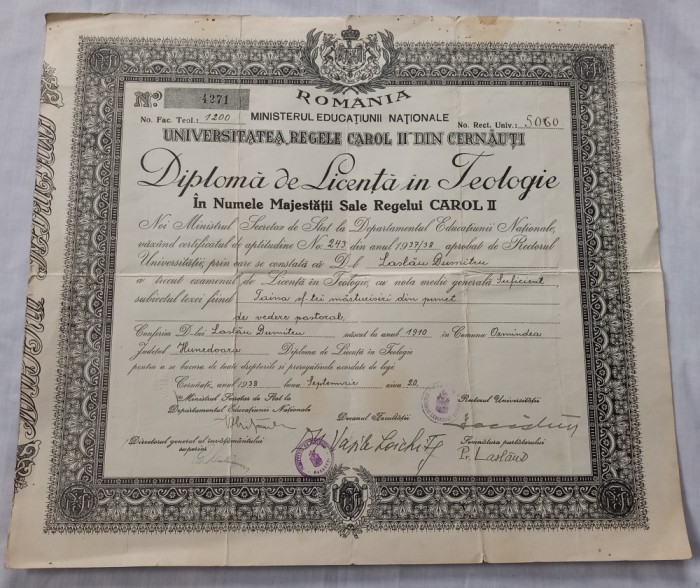 ROMANIA
No. 4271
No. Fac. Teol.: 1200
MINISTERUL EDUCAȚIUNII NAȚIONALE
No. Rect. Univ.: 5060
UNIVERSITATEA „REGELE CAROL II” DIN CERNĂUȚI
Diplomă de Licență în Teologie
În Numele Majestății Sale Regelui CAROL II
Noi Ministrul Secretar de Stat la Departamentul Educațiunii Naționale,
văzând certificatul de aptitudine No. 243 din anul 1937/38 aprobat de Rectorul
Universității, prin care se constată că D-l Laslău Dumitru
a trecut examenul de Licență în Teologie, cu nota medie generală Suficient,
subiectul tezei fiind Taina sf-tei mărturisiri din punct
de vedere pastoral.
Conferim D-lui Laslău Dumitru născut la anul 1910 în Comuna Ormindea
Județul Hunedoara Diploma de Licență în Teologie
pentru a se bucura de toate drepturile și prerogativele acordate de lege
Cernăuți, anul 1938 luna Septemvrie ziua 20.
Ministrul Secretar de Stat la
Departamentul Educațiunii Naționale
Decanul Facultății
Rectorul Universității
Directorul general al învățământului
superior
Dr. Vasile Loichița
Semnătura purtătorului
Pr. Laslău D